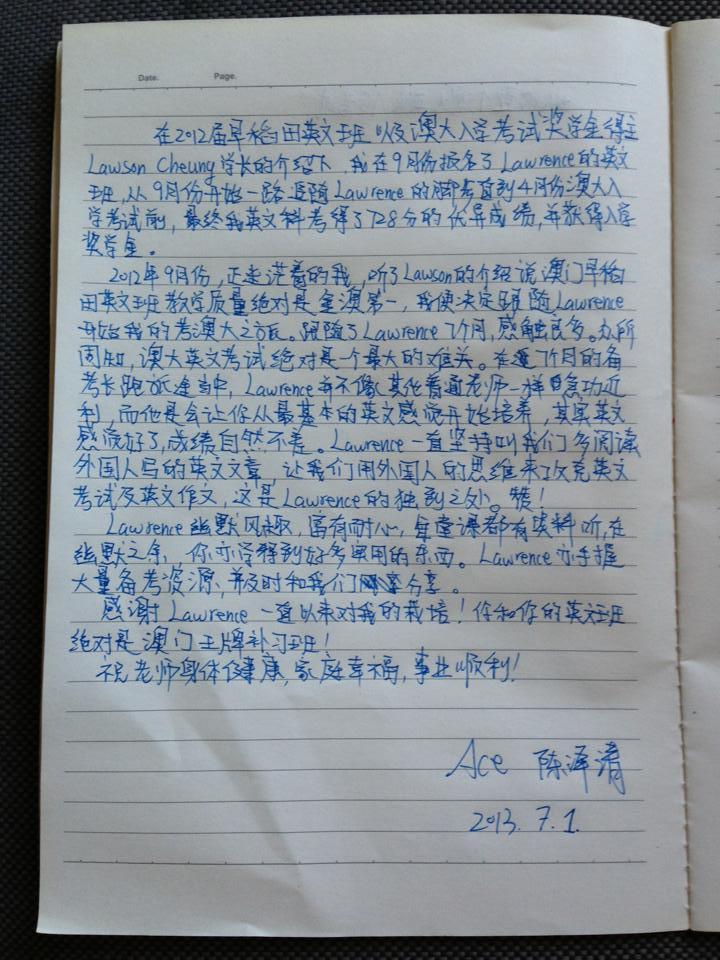 Date. Page.
在2012届早稻田英文班以及澳大入学考试奖学金得主
Lawson Cheung学长的介绍下,我在9月份报名了Lawrence的英文
班,从9月份开始一路追随Lawrence的脚步直到4月份澳大入
学考试前,最终我英文科考得了728分的优异成绩,并获得入学
奖学金。
2012年9月份,正走茫着的我,听了Lawson的介绍说澳门早稻
田英文班教学质量绝对是全澳第一,我便决定跟随Lawrence
开始我的考澳大之旅。跟随了Lawrence 7个月,感触良多。众所
周知,澳大英文考试绝对是一个最大的难关。在这7个月的备
考长跑旅途当中,Lawrence并不像其他普通老师一样急功近
利,而他是会让你从最基本的英文感觉开始培养,其实英文
感觉好了,成绩自然不差。Lawrence一直坚持叫我们多阅读
外国人写的英文文章,让我们用外国人的思维来攻克英文
考试及英文作文,这是Lawrence的独到之处。赞!
Lawrence幽默风趣,富有耐心,每堂课都有笑料听,在
幽默之余,你亦学得到好多实用的东西。Lawrence亦手握
大量备考资源,并及时和我们分享。
感谢Lawrence一直以来对我的栽培!你和你的英文班
绝对是澳门王牌补习班!
祝老师身体健康,家庭幸福,事业顺利!
Ace 陈泽清
2013. 7. 1.